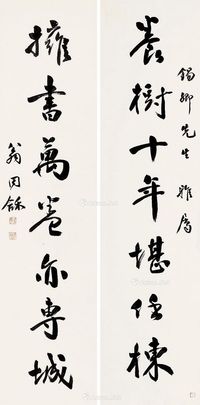 錫卿先生雅属
養樹十年堪任棟
擁書萬卷亦專城
翁同龢